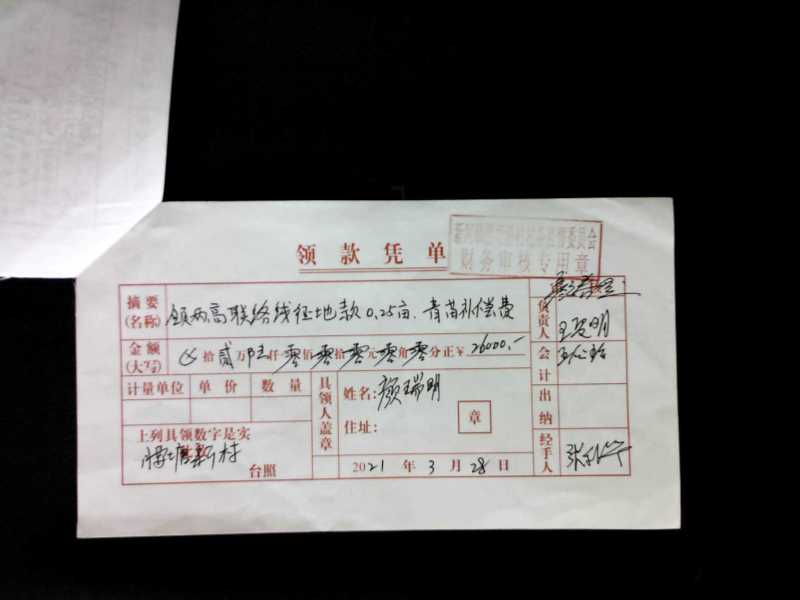 领款凭单
财务审核专用章
摘要(名称) 领两高联络线征地款0.25亩、青苗补偿费
负责人
金额(大写) 拾贰万陆仟零佰零拾零元零角零分正¥26000.-
会计
计量单位 单价 数量
具领人盖章
姓名:颜瑞明
住址:
章
出纳
上列具领数字是实
新村
台照
2021年3月28日
经手人